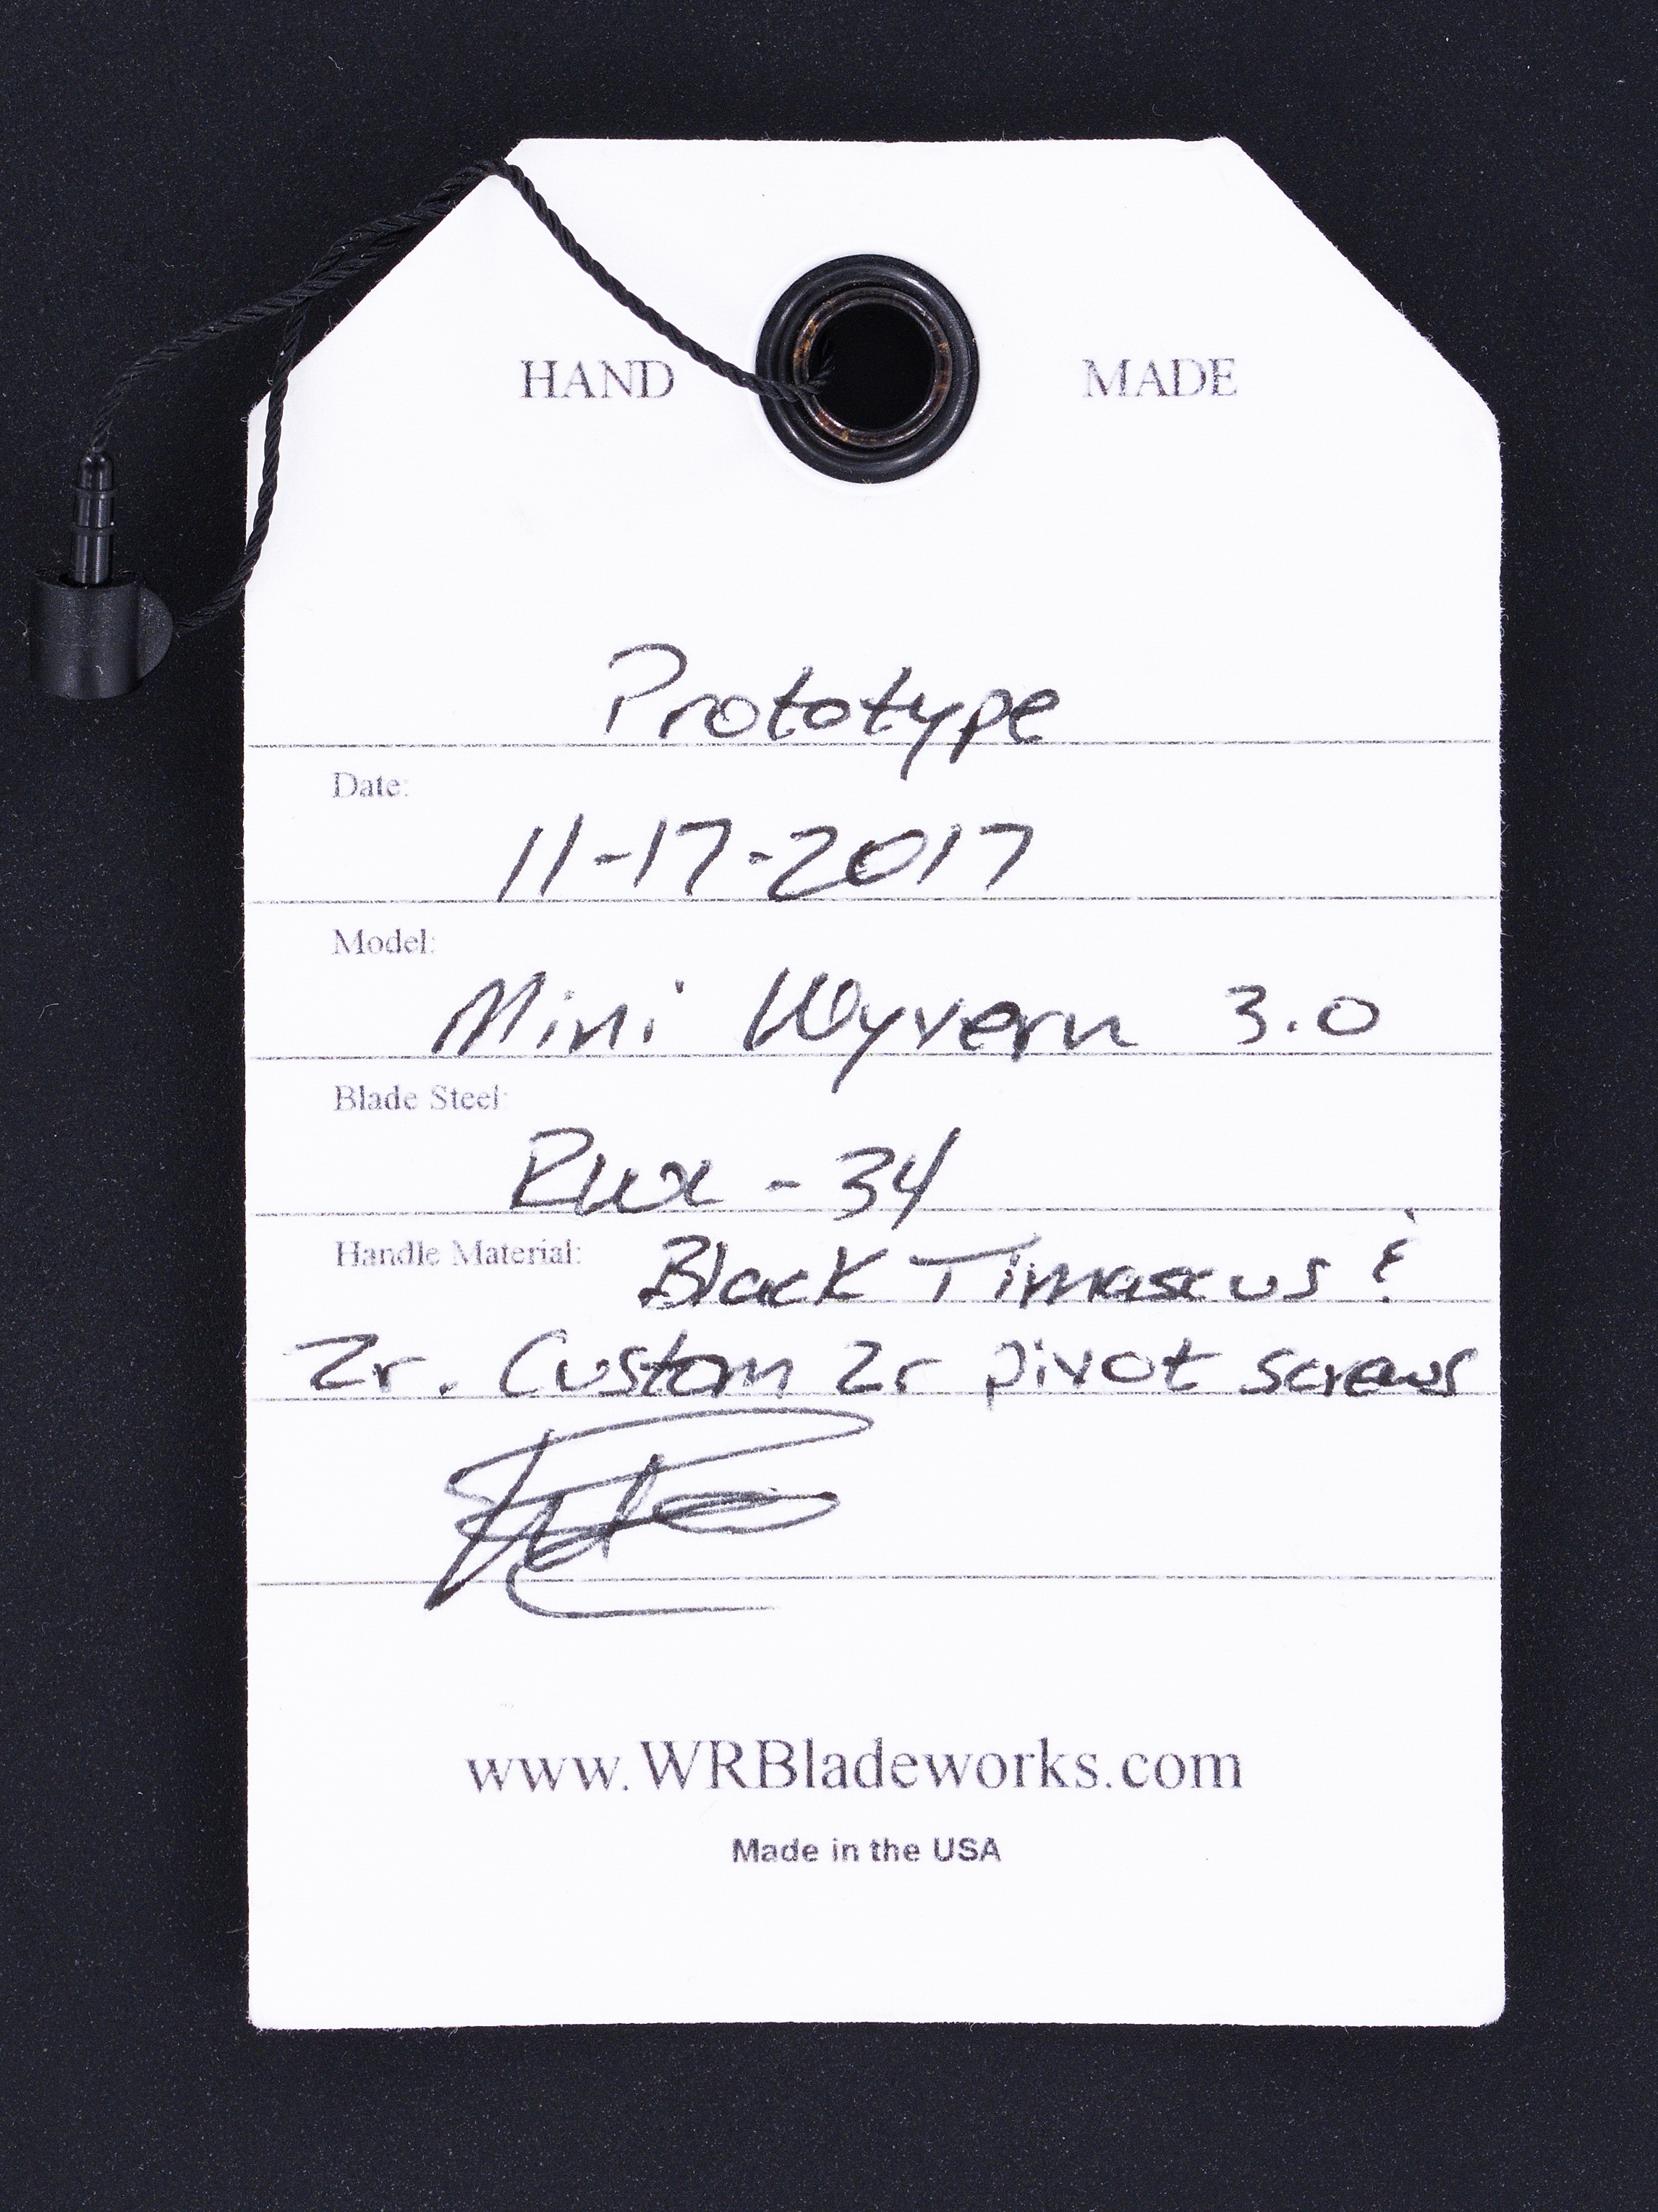 HAND MADE
Prototype
Date:
11-17-2017
Model:
Mini Wyvern 3.0
Blade Steel:
RWL-34
Handle Material: Black Timascus &
Zr. Custom Zr pivot screws
www.WRBladeworks.com
Made in the USA